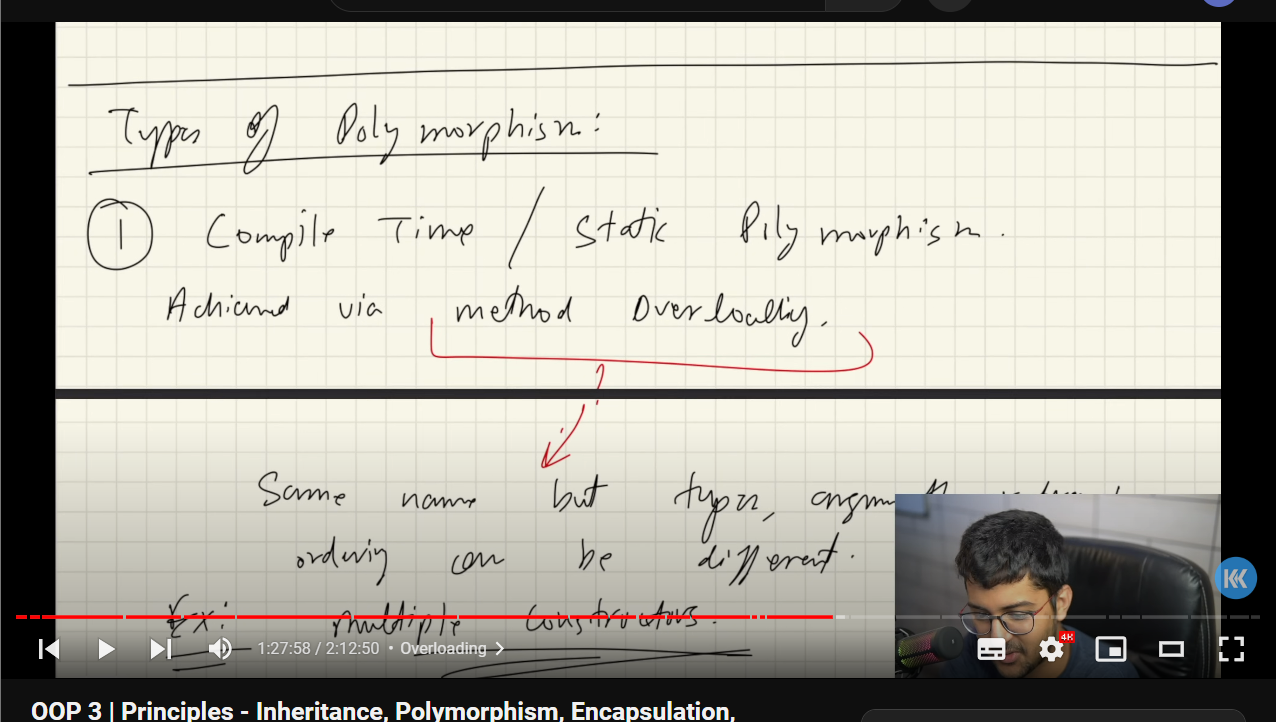 Types of Polymorphism:
1 Compile Time / Static Polymorphism.
Achieved via method Overloading.
Same name but types, argum
ordering can be different.
Ex: multiple constructors.
1:27:58 / 2:12:50 • Overloading
4K
OOP 3 | Principles - Inheritance, Polymorphism, Encapsulation,